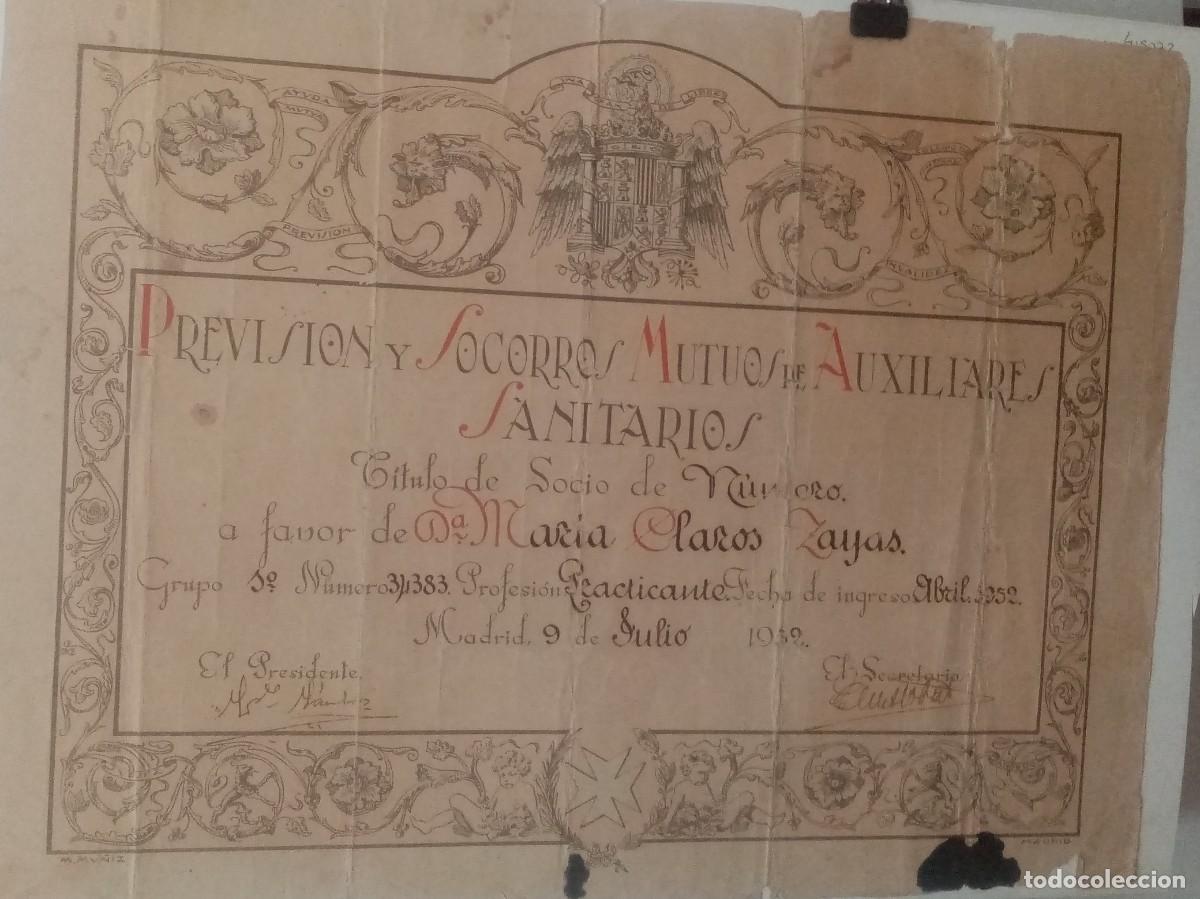 UNA
LIBRE
AYUDA
MUTUA
PREVISION
INVALIDEZ
PREVISION Y SOCORROS MUTUOS DE AUXILIARES
SANITARIOS
Título de Socio de Número.
a favor de Dª Maria Claros Zayas.
Grupo 5º Número 34383. Profesión Practicante. Fecha de ingreso Abril. 1952.
Madrid, 9 de Julio 1952.
El Presidente.
El Secretario
M. MUÑIZ
MADRID
todocoleccion